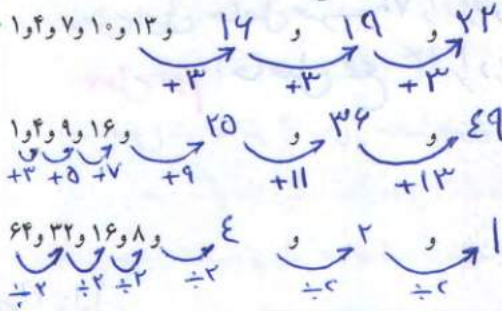 ۱و۴و۷و۱۰و۱۳و ۱۶ و ۱۹ و ۲۲
+۳ +۳ +۳
۱و۴و۹و۱۶و ۲۵ و ۳۶ و ٤۹
+۳ +۵ +۷ +۹ +۱۱ +۱۳
۶۴و۳۲و۱۶و۸و ٤ و ۲ و ۱
÷۲ ÷۲ ÷۲ ÷۲ ÷۲ ÷۲